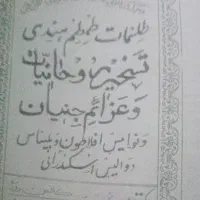 طلسمات طمطم هندی
تسخیر روحانیات
وعزائم جنیان
ونوامیس افلاطون وبلیناس
ووالیس اسکندرانی